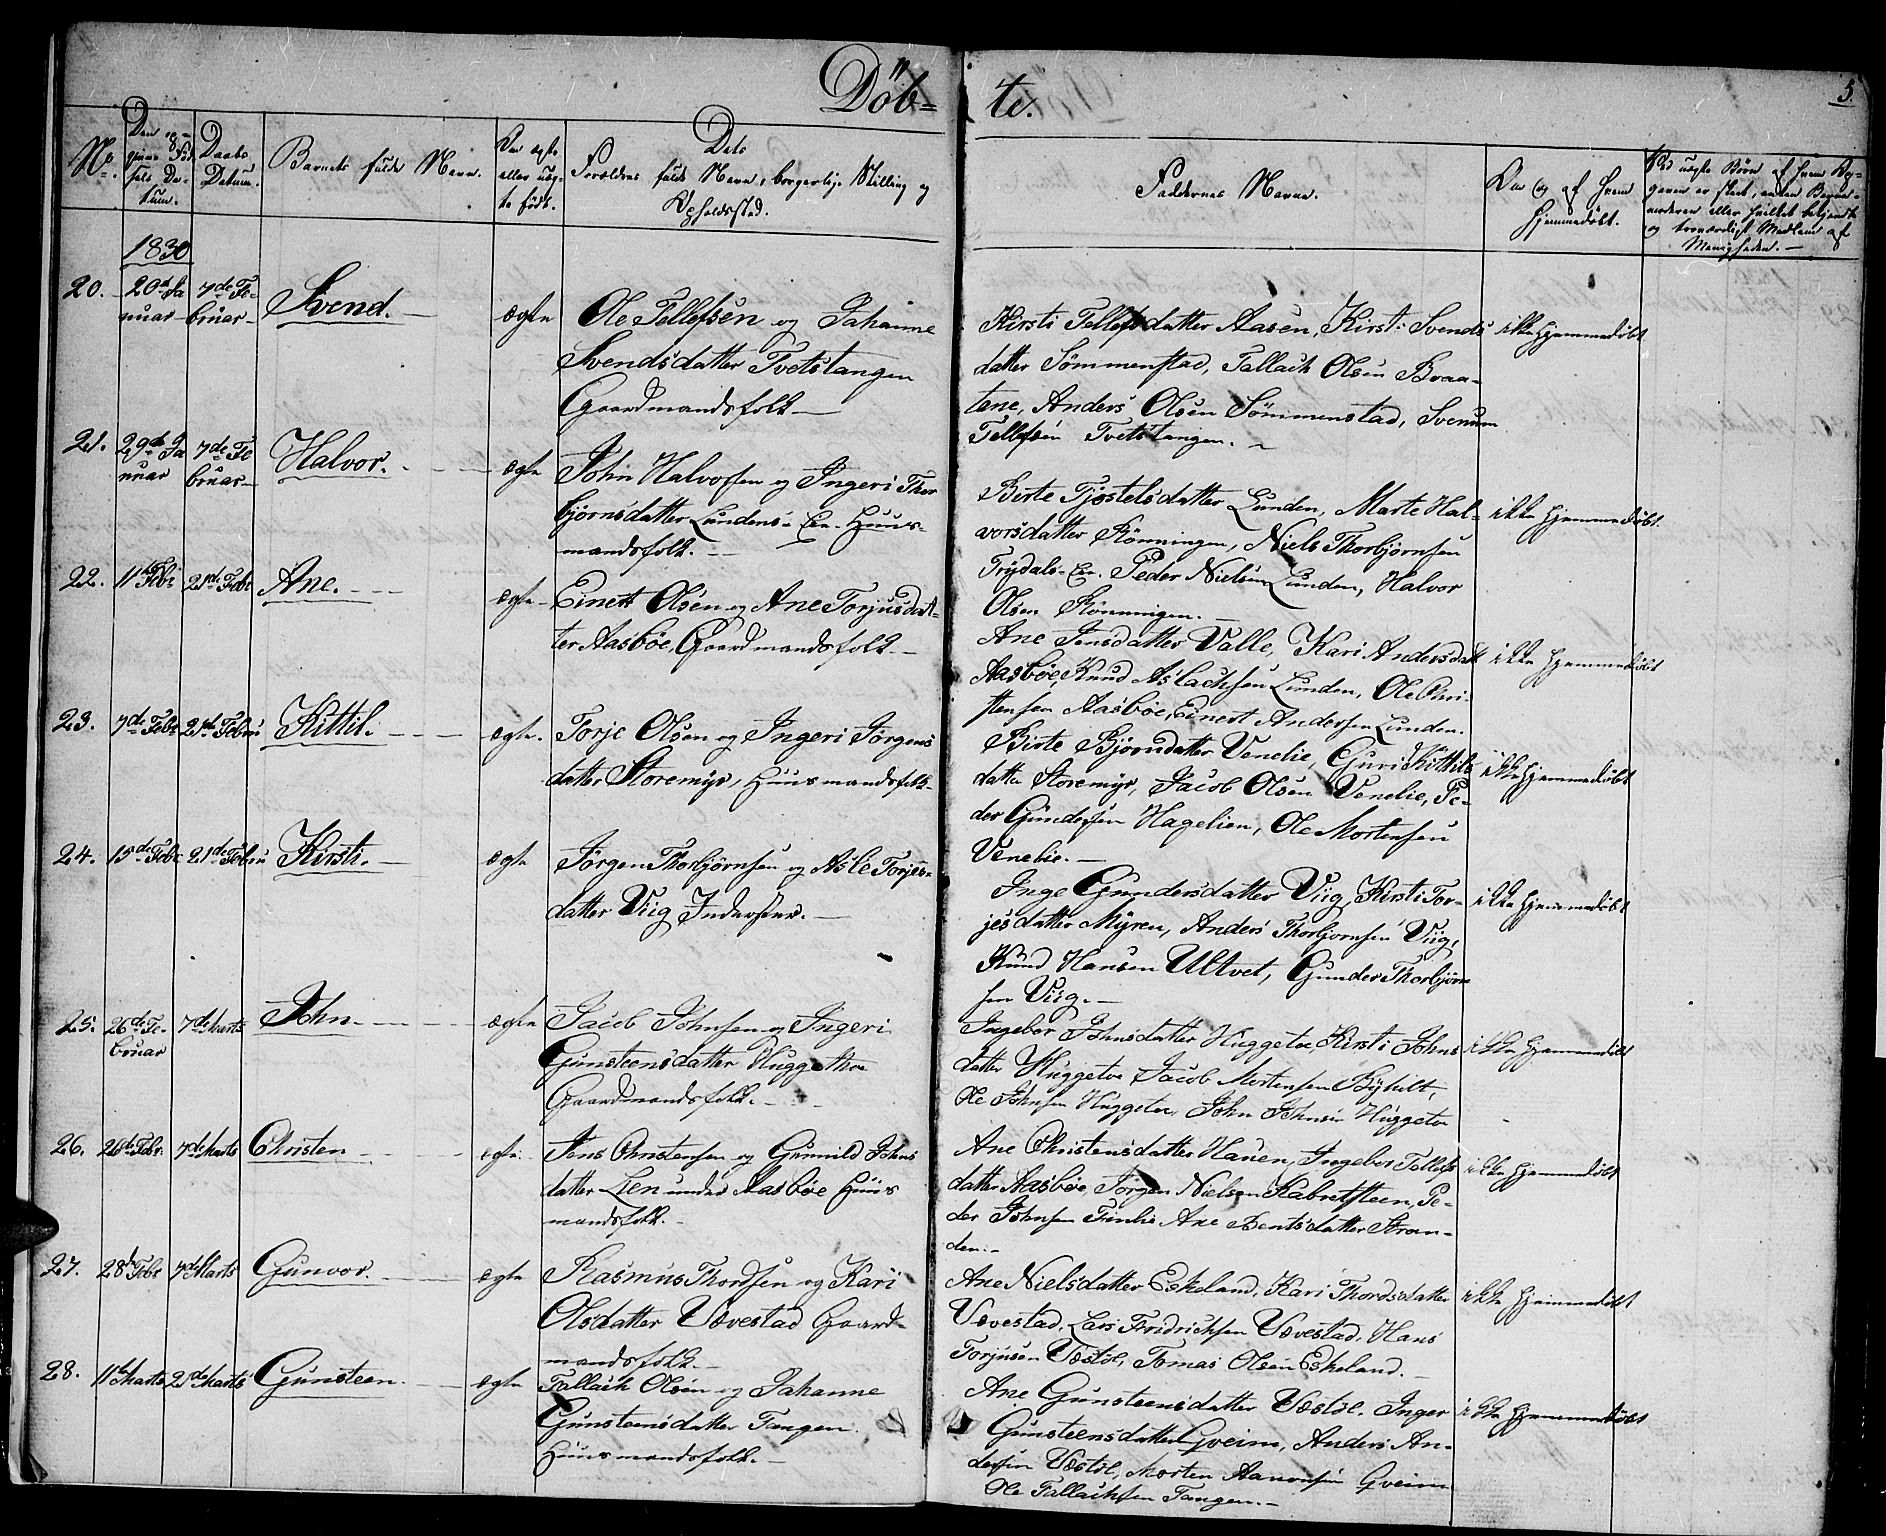 Döb=
te.
5.
No.
Den og-
Fød-
sels Da-
tum.
Daabs
Datum.
Barnets fulde Navn.
Om ægte
eller uæg-
te født.
Dets
Forældres fulde Navn, borgerlige Stilling og
Opholdssted.
Faddernes Navne.
Om og af hvem
hjemmedøbt.
Ved uægte Børn af hvem Op-
gaven er skeet, enten Barne-
moderen eller hvilket bekjendt
og troværdigt Medlem af
Menigheden.
1830
20. 20de Ja
nuar
7de Fe-
bruar
Svend.
ægte
Ole Tellefsen og Johanne
Svendsdatter Tvetstangen
Gaardmandsfolk
Kirsti Tellefsdatter Aasen, Kirsti Svends
datter Sömmenstad, Tallach Olsen Braa-
tene, Anders Olsen Sömmenstad, Svenum
Tellefsen Tvetstangen.
ikke hjemmedøbt
21. 29de Ja
nuar
7de Fe
bruar
Halvor.
ægte
John Halvorsen og Ingeri Thor
bjørnsdatter Lundens-Eie. Huus-
mandsfolk.
Birte Tjøstelsdatter Lunden, Marte Hal-
vorsdatter Rönningen, Niels Thorbjørnsen
Trydals-Eie. Peder Nielsen Lunden, Halvor
Olsen Rönningen.
ikke hjemmedøbt.
22. 11te Febr
21de Febr
Ane.
ægte
Einert Olsen og Ane Torjusdat-
ter Aasbøe, Gaardmandsfolk.
Ane Jensdatter Valle, Kari Andersdatt
Aasbøe, Knud Aslachsen Lunden, Ole Chri-
stensen Aasbøe, Einert Andersen Lunden.
ikke hjemmedøbt
23. 7de Febr
21de Febru
Kittil.
ægte.
Torje Olsen og Ingeri Jørgens
datter Storemyr, Huusmandsfolk.
Birte Bjørnsdatter Venelie, Guri Kittils
datter Storemyr, Jacob Olsen Venelie, Pe-
der Gundersen Hagelien, Ole Mortensen
Venelie.
ikke hjemmedøbt
24. 15de Febr
21de Febru
Kirsti.
ægte
Jørgen Thorbjørnsen og Asle Torjes-
datter Viig Inderster.
Inge Gundersdatter Viig, Kirsti Tor-
jesdatter Myren, Anders Thorbjørnsen Viig,
Knud Hansen Ultvet, Gunder Thorbjørn
sen Viig.
ikke hjemmedøbt
25. 26de Fe-
bruar
7de Marts
John.
ægte
Jacob Johnsen og Ingeri
Gunsteensdatter Huggetoe
Gaardmandsfolk.
Ingebor Johnsdatter Huggetoe, Kirsti Johns
datter Huggetoe, Jacob Mortensen
Ole Johnsen Huggetoe, John Johnsen Huggetoe
ikke hjemmedøbt
26. 26de Febr.
7de Marts
Christen
ægte.
Jens Christensen og Gunnild Johns
datter Lien under Aasbøe Huus
mandsfolk.
Ane Christensdatter Hauen, Ingebor Tellefs
datter Aasbøe, Jørgen Nielsen Kabretsteen, Pe-
der Johnsen Finlie, Ane Bentsdatter Stran-
den.
ikke hjemmedøbt
27. 28de Febr
7de Marts
Gunvor.
ægte
Rasmus Thordsen og Kari
Olsdatter Vævestad Gaard-
mandsfolk.
Ane Nielsdatter Eskeland, Kari Thordsdatter
Vævestad, Lars Fredrichsen Vævestad, Hans
Torjusen Væstöl, Tomas Olsen Eskeland.
ikke hjemmedøbt
28. 11te Marts
21de Marts
Gunsteen.
ægte
Tallach Olsen og Johanne
Gunsteensdatter Tangen.
Huusmandsfolk.
Ane Gunsteensdatter Væstöl, Inger
Gunsteensdatter Gveim, Anders An-
dersen Væstöl, Morten Aanonsen Gveim
Ole Tallachsen Tangen.
ikke hjemmedøbt